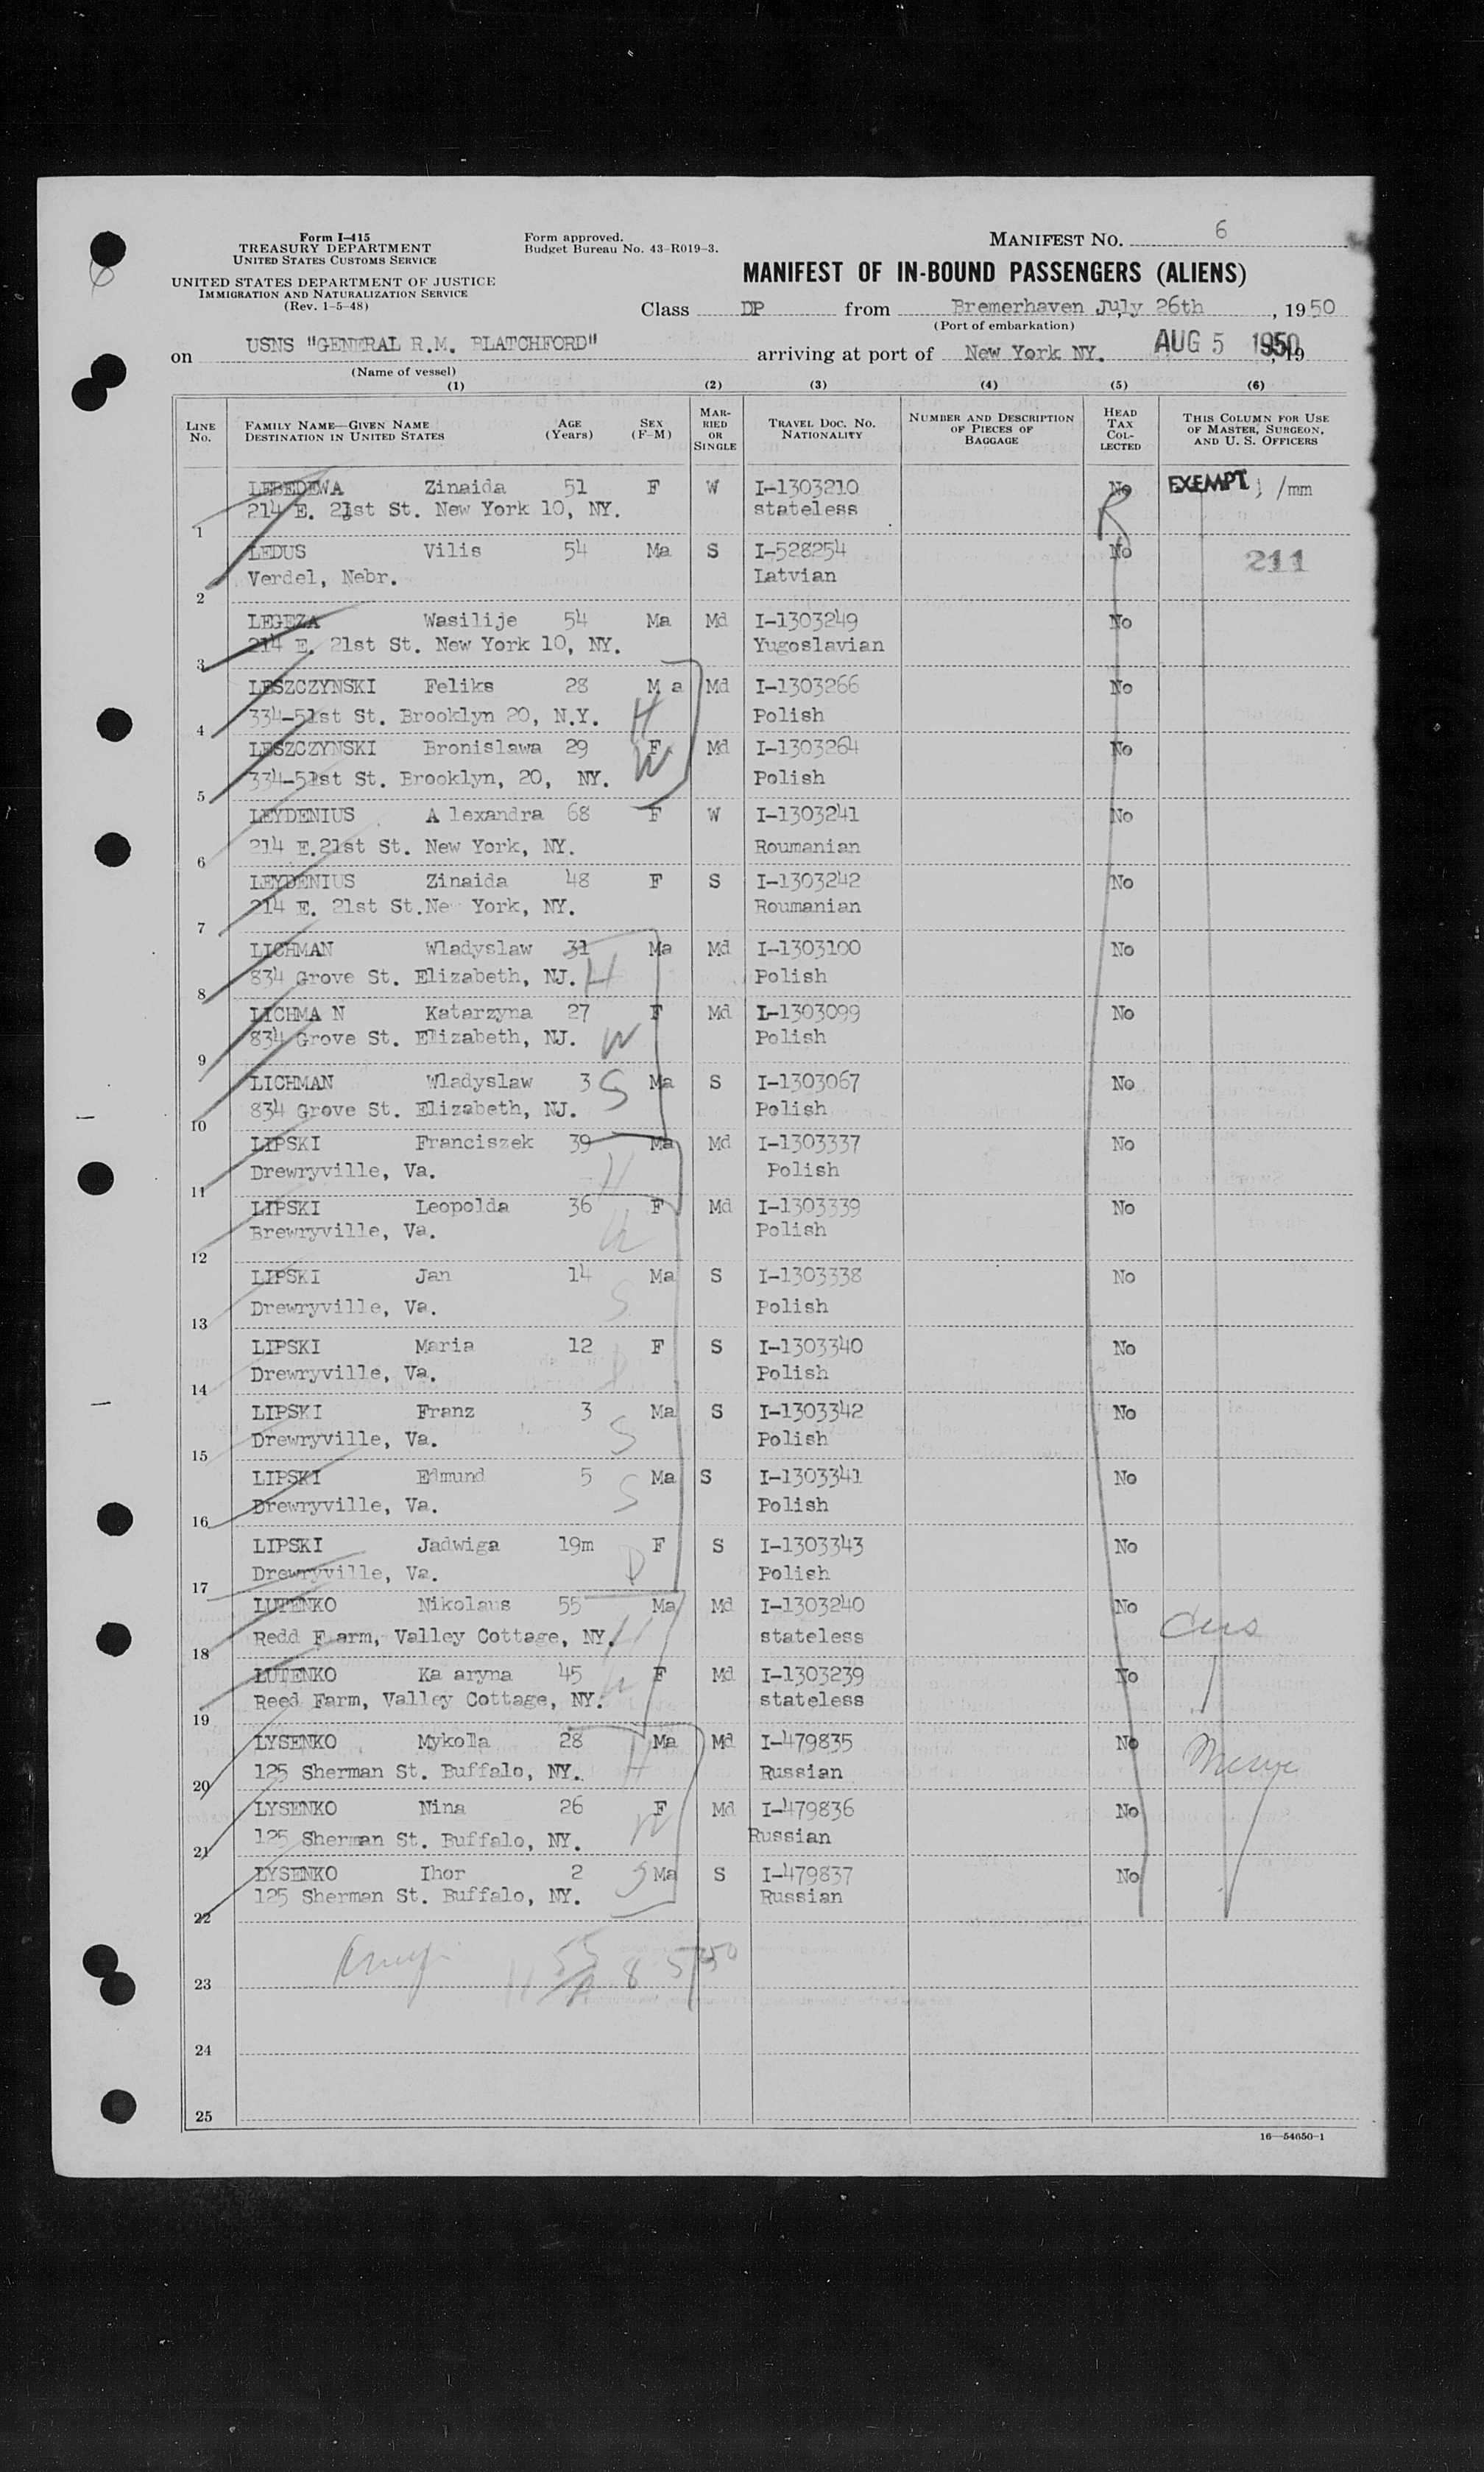 Form I-415
TREASURY DEPARTMENT
UNITED STATES CUSTOMS SERVICE
UNITED STATES DEPARTMENT OF JUSTICE
IMMIGRATION AND NATURALIZATION SERVICE
(Rev. 1-5-48)
Form approved.
Budget Bureau No. 43-R019-3.
MANIFEST NO. 6
MANIFEST OF IN-BOUND PASSENGERS (ALIENS)
Class DP from Bremerhaven July 26th, 1950
(Port of embarkation)
on USNS "GENERAL R.M. BLATCHFORD" arriving at port of New York NY. AUG 5 1950, 19
(Name of vessel)
(1) (2) (3) (4) (5) (6)
LINE No. FAMILY NAME—GIVEN NAME DESTINATION IN UNITED STATES AGE (Years) SEX (F-M) MARRIED OR SINGLE TRAVEL DOC. NO. NATIONALITY NUMBER AND DESCRIPTION OF PIECES OF BAGGAGE HEAD TAX COLLECTED THIS COLUMN FOR USE OF MASTER, SURGEON, AND U. S. OFFICERS
LEBEDEWA Zinaida 51 F W I-1303210 No EXEMPT /mm
1 214 E. 21st St. New York 10, NY. stateless R
LEDUS Vilis 54 Ma S I-528254 No 211
2 Verdel, Nebr. Latvian
LEGEZA Wasilije 54 Ma Md I-1303249 No
3 214 E. 21st St. New York 10, NY. Yugoslavian
LESZCZYNSKI Feliks 28 M a Md I-1303266 No
4 334-51st St. Brooklyn 20, N.Y. H Polish
LESZCZYNSKI Bronislawa 29 F Md I-1303264 No
5 334-51st St. Brooklyn, 20, NY. W Polish
LEYDENIUS A lexandra 68 F W I-1303241 No
6 214 E.21st St. New York, NY. Roumanian
LEYDENIUS Zinaida 48 F S I-1303242 No
7 214 E. 21st St.Ne York, NY. Roumanian
LICHMAN Wladyslaw 31 Ma Md I-1303100 No
8 834 Grove St. Elizabeth, NJ. H Polish
LICHMA N Katarzyna 27 F Md I-1303099 No
9 834 Grove St. Elizabeth, NJ. W Polish
LICHMAN Wladyslaw 3 S Ma S I-1303067 No
10 834 Grove St. Elizabeth, NJ. Polish
LIPSKI Franciszek 39 Ma Md I-1303337 No
11 Drewryville, Va. H Polish
LIPSKI Leopolda 36 F Md I-1303339 No
12 Brewryville, Va. W Polish
LIPSKI Jan 14 Ma S I-1303338 No
13 Drewryville, Va. S Polish
LIPSKI Maria 12 F S I-1303340 No
14 Drewryville, Va. Polish
LIPSKI Franz 3 Ma S I-1303342 No
15 Drewryville, Va. S Polish
LIPSKI Edmund 5 Ma S I-1303341 No
16 Drewryville, Va. S Polish
LIPSKI Jadwiga 19m F S I-1303343 No
17 Drewryville, Va. D Polish
LUTENKO Nikolaus 55 Ma Md I-1303240 No
18 Redd F arm, Valley Cottage, NY. H stateless
LUTENKO Ka aryna 45 F Md I-1303239 No
19 Reed Farm, Valley Cottage, NY. W stateless
LYSENKO Mykola 28 Ma Md I-479835 No
20 125 Sherman St. Buffalo, NY. H Russian
LYSENKO Nina 26 F Md I-479836 No
21 125 Sherman St. Buffalo, NY. W Russian
LYSENKO Ihor 2 S Ma S I-479837 No
22 125 Sherman St. Buffalo, NY. Russian
23 8 5 50
24
25
16—54650-1